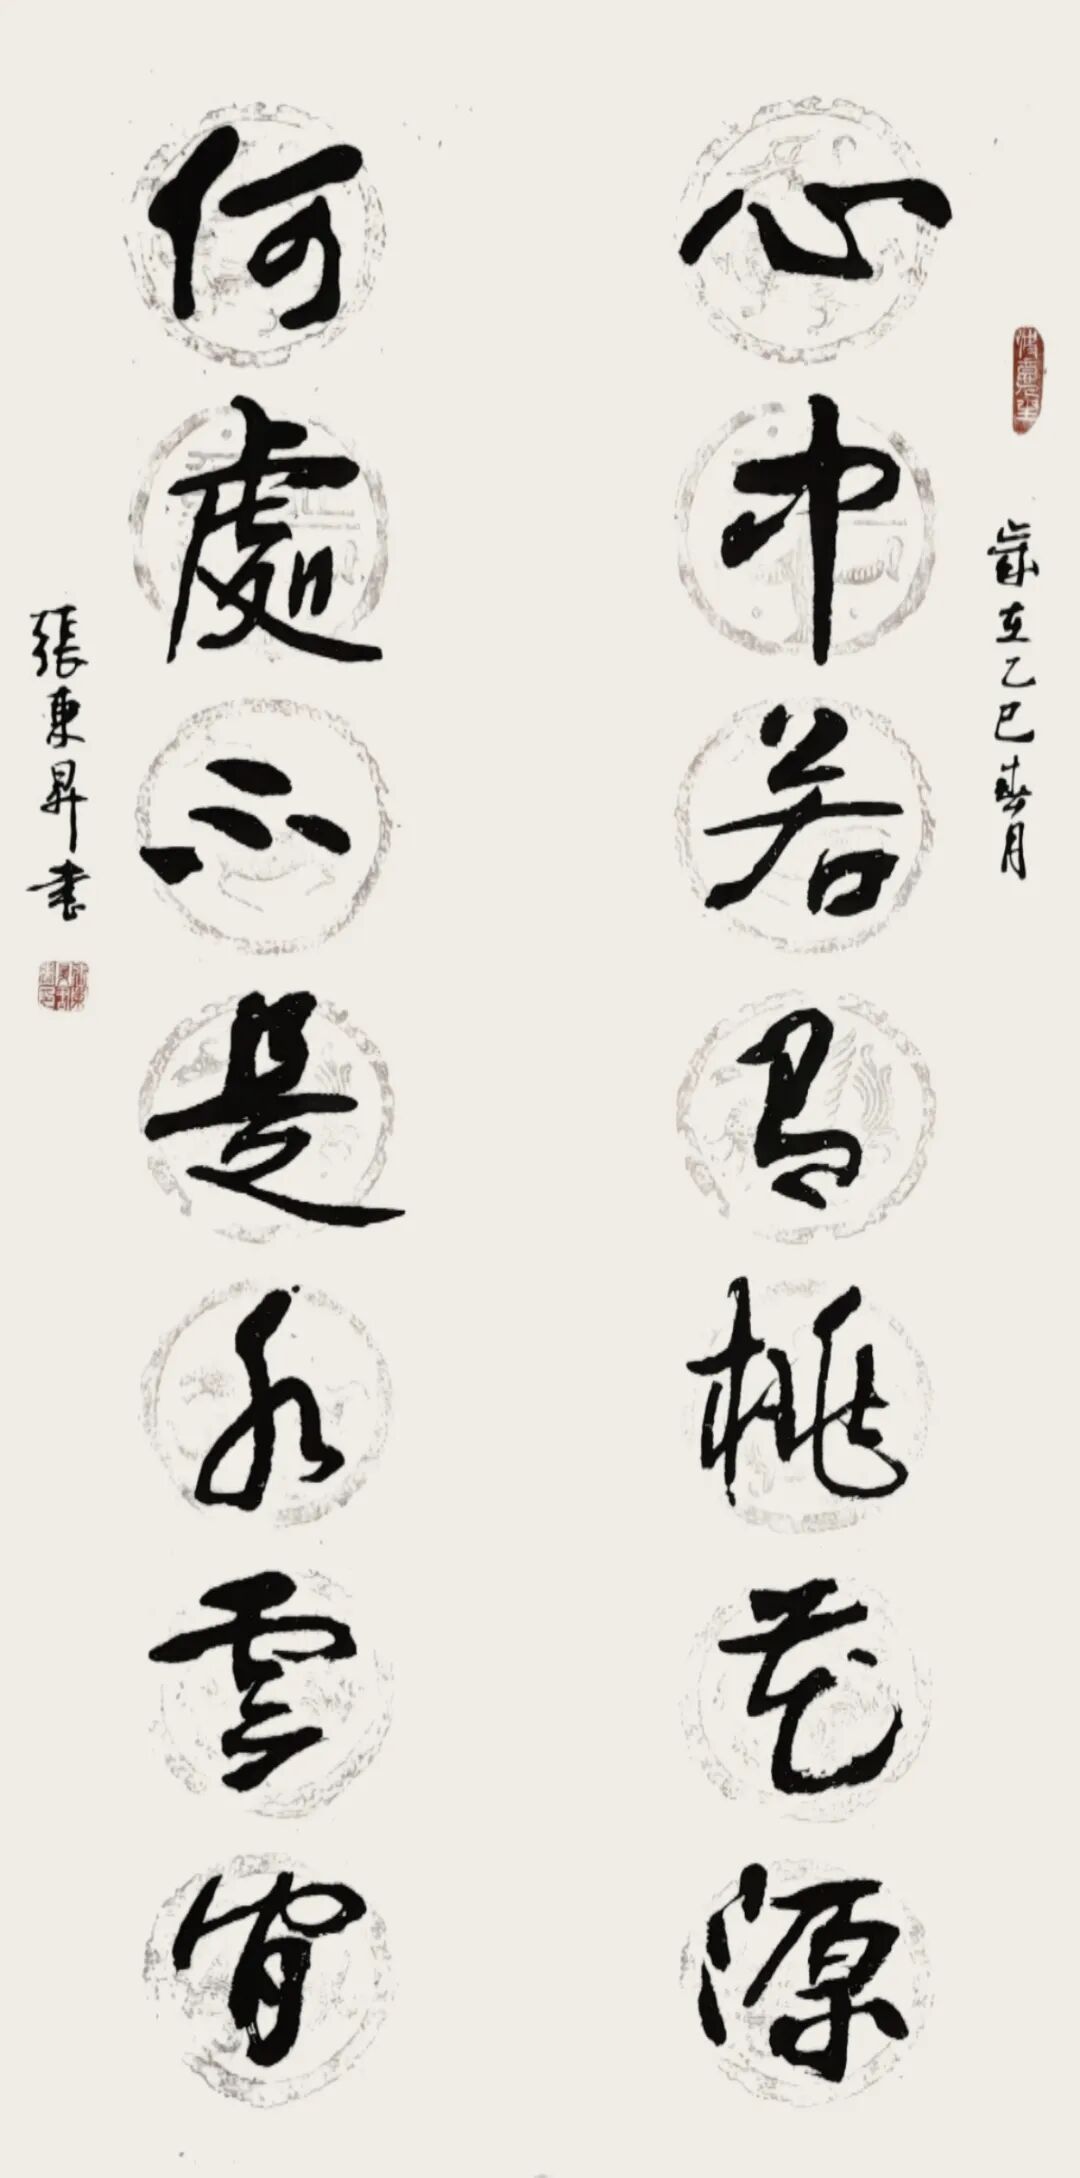 歲在乙巳春月
心中若有桃花源
何處不是水雲間
張東昇書